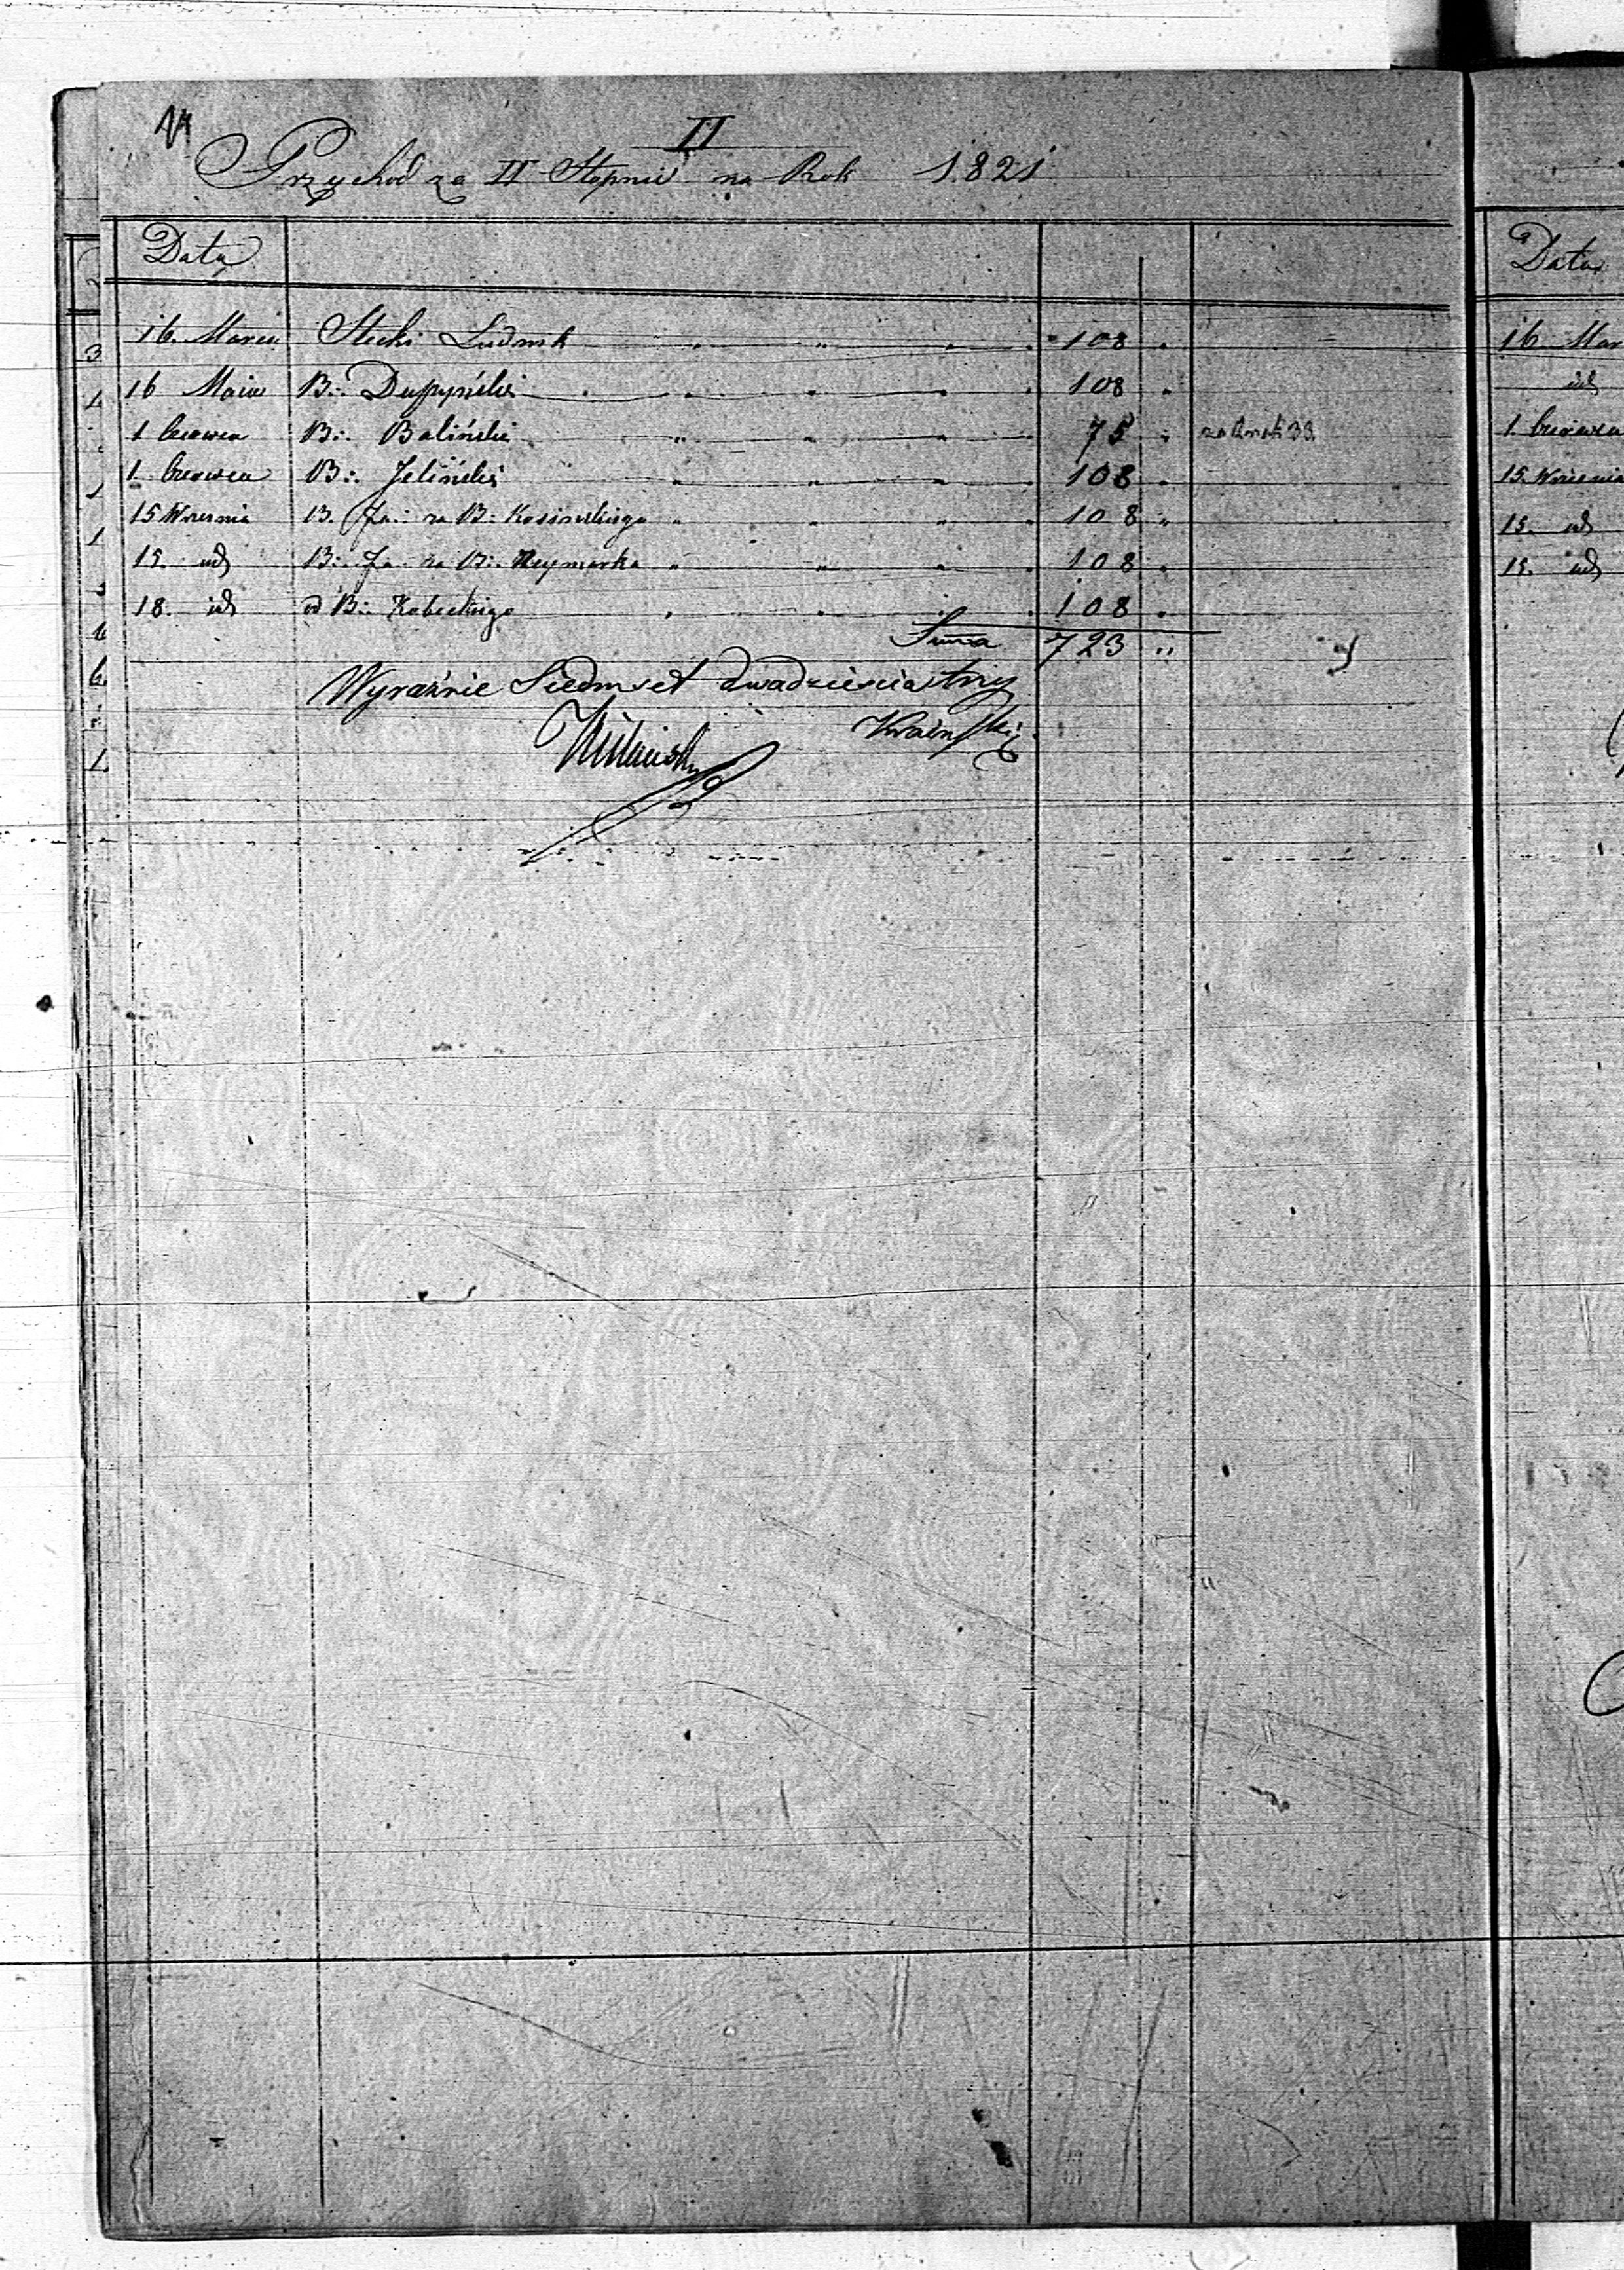 II
Przychod za II Stopnie na Rok 1821
Data
16. Marca Stecki Ludwik 108 "
16 Maia B:. 108 "
1 Czerwca B:. Baliński 75 "
1 Czerwca B:. Jeliński 108 "
15 Września B. Ja:. za B:. Kosińskiego 108 "
15. id B:. Ja za B:. Neymarka 108 "
18. id od B:. Kobeckiego 108 "
Suma 723 "
Wyraźnie Siedmset dwadzieścia trzy
Kraiński
Data
16 Mar
id
1 Czerwca
15. Września
15. id
15. id